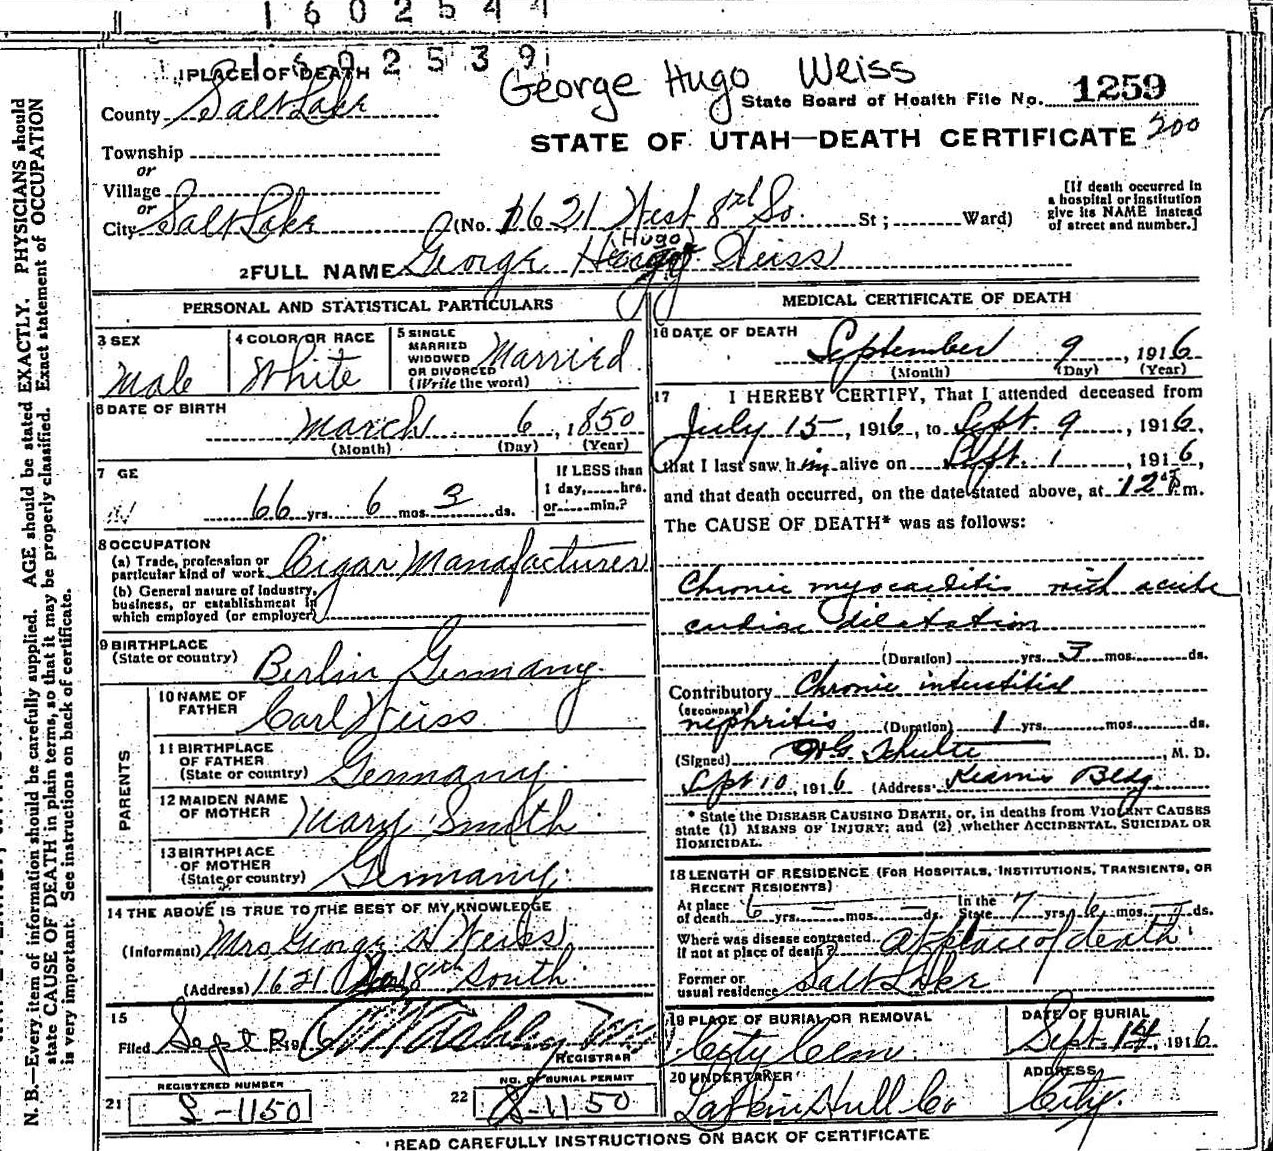 1 6 0 2 5 4 4
1 PLACE OF DEATH
1 6 0 2 5 3 9
George Hugo Weiss
County Salt Lake
State Board of Health File No. 1259
Township
STATE OF UTAH—DEATH CERTIFICATE 200
or
Village
or
City Salt Lake (No. 1621 West 8th So. St; Ward)
[If death occurred in
a hospital or institution
give its NAME instead
of street and number.]
(Hugo)
2 FULL NAME George Hugo Weiss
PERSONAL AND STATISTICAL PARTICULARS
3 SEX
Male
4 COLOR OR RACE
White
5 SINGLE
MARRIED
WIDOWED
OR DIVORCED
(Write the word)
Married
6 DATE OF BIRTH
March 6, 1850
(Month) (Day) (Year)
7 GE
66 yrs. 6 mos. 3 ds.
If LESS than
1 day, hrs.
or min.?
8 OCCUPATION
(a) Trade, profession or
particular kind of work Cigar Manufacturer
(b) General nature of industry,
business, or establishment in
which employed (or employer)
9 BIRTHPLACE
(State or country) Berlin Germany.
PARENTS
10 NAME OF
FATHER
Carl Weiss
11 BIRTHPLACE
OF FATHER
(State or country) Germany.
12 MAIDEN NAME
OF MOTHER
Mary Smith
13 BIRTHPLACE
OF MOTHER
(State or country) Germany.
14 THE ABOVE IS TRUE TO THE BEST OF MY KNOWLEDGE
(Informant) Mrs George H Weiss,
(Address) 1621 8th South.
15
Filed Sept
REGISTRAR
REGISTERED NUMBER
21 S-1150
NO. OF BURIAL PERMIT
22 S-1150
MEDICAL CERTIFICATE OF DEATH
16 DATE OF DEATH
September 9, 1916
(Month) (Day) (Year)
17 I HEREBY CERTIFY, That I attended deceased from
July 15, 1916, to Sept. 9, 1916,
that I last saw him alive on Sept. 1, 1916,
and that death occurred, on the date stated above, at 12 m.
The CAUSE OF DEATH* was as follows:
Chronic myocarditis with acute
cardiac dilatation
(Duration) yrs. 3 mos. ds.
Contributory Chronic interstitial
(SECONDARY)
nephritis (Duration) 1 yrs. mos. ds.
(Signed) Schulte, M. D.
Sept 10, 1916 (Address) Kearns Bldg.
* State the DISEASE CAUSING DEATH, or, in deaths from VIOLENT CAUSES
state (1) MEANS OF INJURY; and (2) whether ACCIDENTAL, SUICIDAL OR
HOMICIDAL.
18 LENGTH OF RESIDENCE (FOR HOSPITALS, INSTITUTIONS, TRANSIENTS, OR
RECENT RESIDENTS)
At place
of death 6 yrs. — mos. — ds.
In the
State 7 yrs. 6 mos. ds.
Where was disease contracted
if not at place of death? at place of death
Former or
usual residence Salt Lake
19 PLACE OF BURIAL OR REMOVAL
City Cem
DATE OF BURIAL
Sept. 1916
20 UNDERTAKER
Larkin Hull Co
ADDRESS
City.
READ CAREFULLY INSTRUCTIONS ON BACK OF CERTIFICATE
N. B.—Every item of information should be carefully supplied. AGE should be stated EXACTLY. PHYSICIANS should
state CAUSE OF DEATH in plain terms, so that it may be properly classified. Exact statement of OCCUPATION
is very important. See instructions on back of certificate.